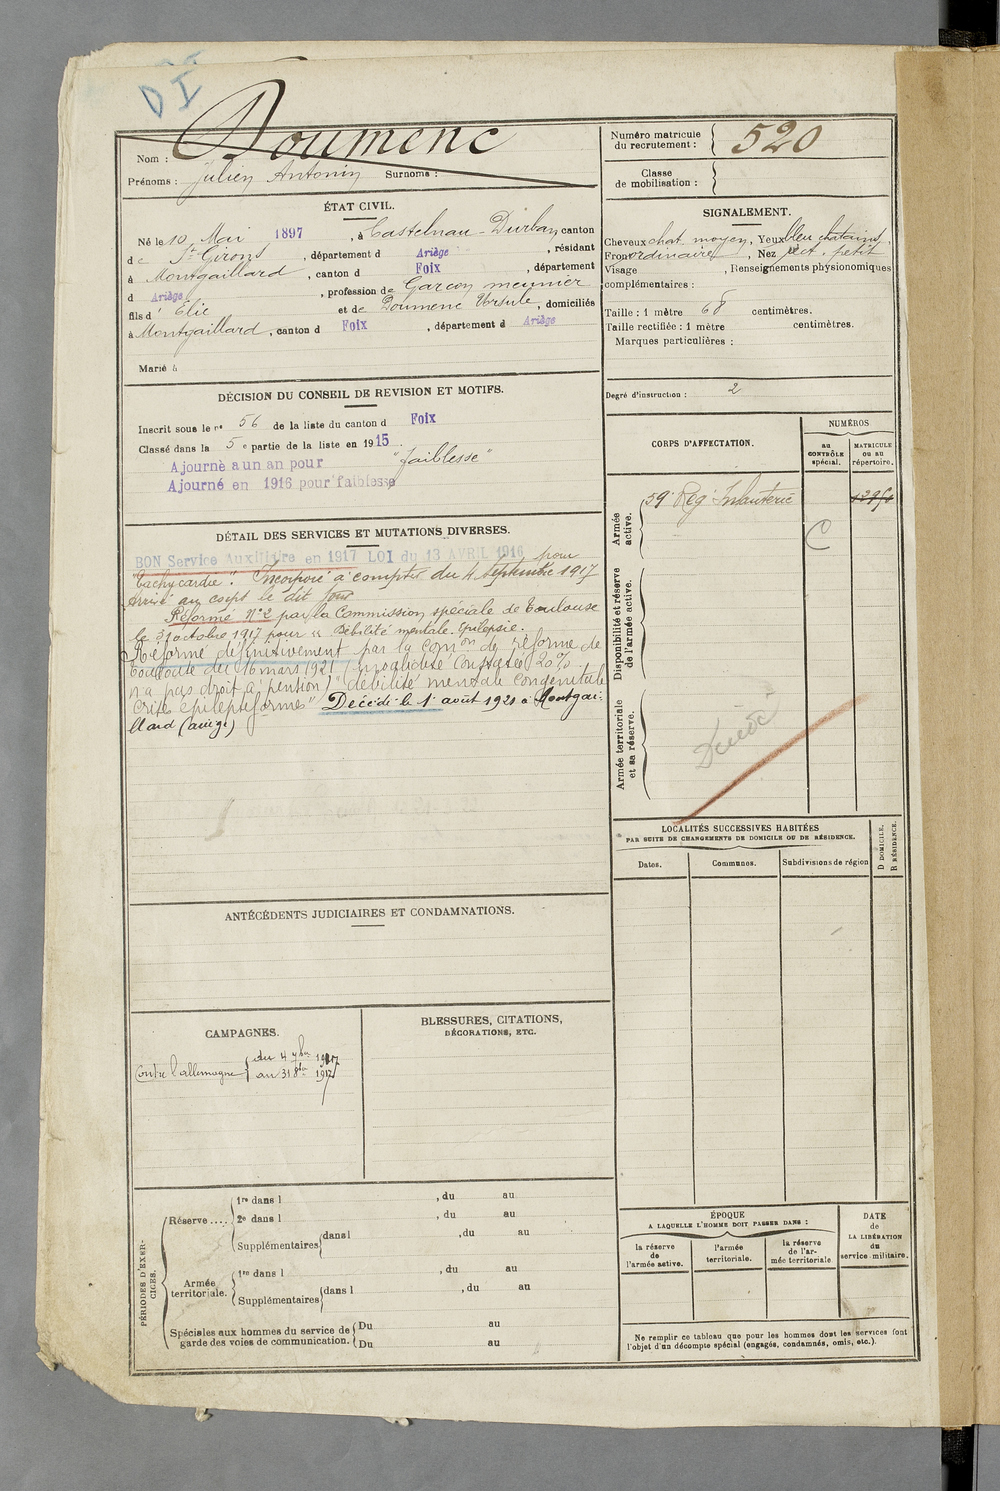 Nom : Doumenc
Prénoms : Julien Antonin Surnoms :
ÉTAT CIVIL.
Né le 10 Mai 1897, à Castelnau-Durban, canton
de St Girons, département d Ariège, résidant
à Montgaillard, canton d Foix, département
d Ariège, profession de Garçon meunier
fils d' Elie et de Doumenc Ursule, domiciliés
à Montgaillard, canton d Foix, département d Ariège
Marié à
DÉCISION DU CONSEIL DE REVISION ET MOTIFS.
Inscrit sous le no 56 de la liste du canton d Foix
Classé dans la 5e partie de la liste en 1915.
Ajourné a un an pour "faiblesse"
Ajourné en 1916 pour faiblesse
DÉTAIL DES SERVICES ET MUTATIONS DIVERSES.
BON Service Auxiliaire en 1917 LOI du 13 AVRIL 1916 pour
"Tachycardie". Incorporé à compter du 4 Septembre 1917
Arrivé au corps le dit jour
Réformé No 2 par la Commission spéciale de Toulouse
le 31 octobre 1917 pour "Débilité mentale. Epilepsie.
Réformé définitivement par la Comon de réforme de
Toulouse du 16 mars 1921 (invalidité constatée 20%
n'a pas droit à pension) "débilité mentale congénitale
Crises épileptiformes" Décédé le 1er août 1921 à Montgai-
llard (ariège)
ANTÉCÉDENTS JUDICIAIRES ET CONDAMNATIONS.
CAMPAGNES.
Contre l'allemagne { du 4 7bre 1917
au 31 8bre 1917
BLESSURES, CITATIONS,
DÉCORATIONS, ETC.
PÉRIODES D'EXER-
CICES.
Réserve ....
1re dans l , du au
2e dans l , du au
Supplémentaires { dans l , du au
Armée
territoriale.
1re dans l , du au
Supplémentaires { dans l , du au
Spéciales aux hommes du service de
garde des voies de communication. { Du au
Du au
Numéro matricule
du recrutement : 520
Classe
de mobilisation :
SIGNALEMENT.
Cheveux chat. moyen, Yeux bleu chatains,
Front ordinaire, Nez rect. petit
Visage , Renseignements physionomiques
complémentaires :
Taille : 1 mètre 68 centimètres.
Taille rectifiée : 1 mètre centimètres.
Marques particulières :
Degré d'instruction : 2
CORPS D'AFFECTATION.
NUMÉROS
AU
CONTRÔLE
spécial.
MATRICULE
OU AU
répertoire.
Armée
active.
59e Rég. Infanterie
C
Disponibilité et réserve
de l'armée active.
Armée territoriale
et sa réserve.
LOCALITÉS SUCCESSIVES HABITÉES
PAR SUITE DE CHANGEMENTS DE DOMICILE OU DE RÉSIDENCE.
Dates.
Communes.
Subdivisions de région
D DOMICILE.
R RÉSIDENCE.
ÉPOQUE
A LAQUELLE L'HOMME DOIT PASSER DANS :
la réserve
de
l'armée active.
l'armée
territoriale.
la réserve
de l'ar-
mée territoriale
DATE
de
LA LIBÉRATION
du
service militaire.
Ne remplir ce tableau que pour les hommes dont les services font
l'objet d'un décompte spécial (engagés, condamnés, omis, etc.).